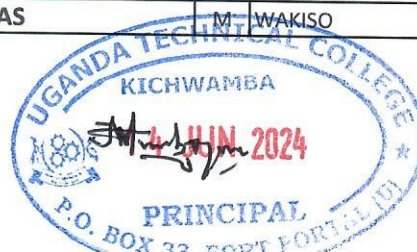 AS M WAKISO
UGANDA TECHNICAL COLLEGE
KICHWAMBA
4 JUN 2024
PRINCIPAL
P.O. BOX 33, FORT PORTAL (U)